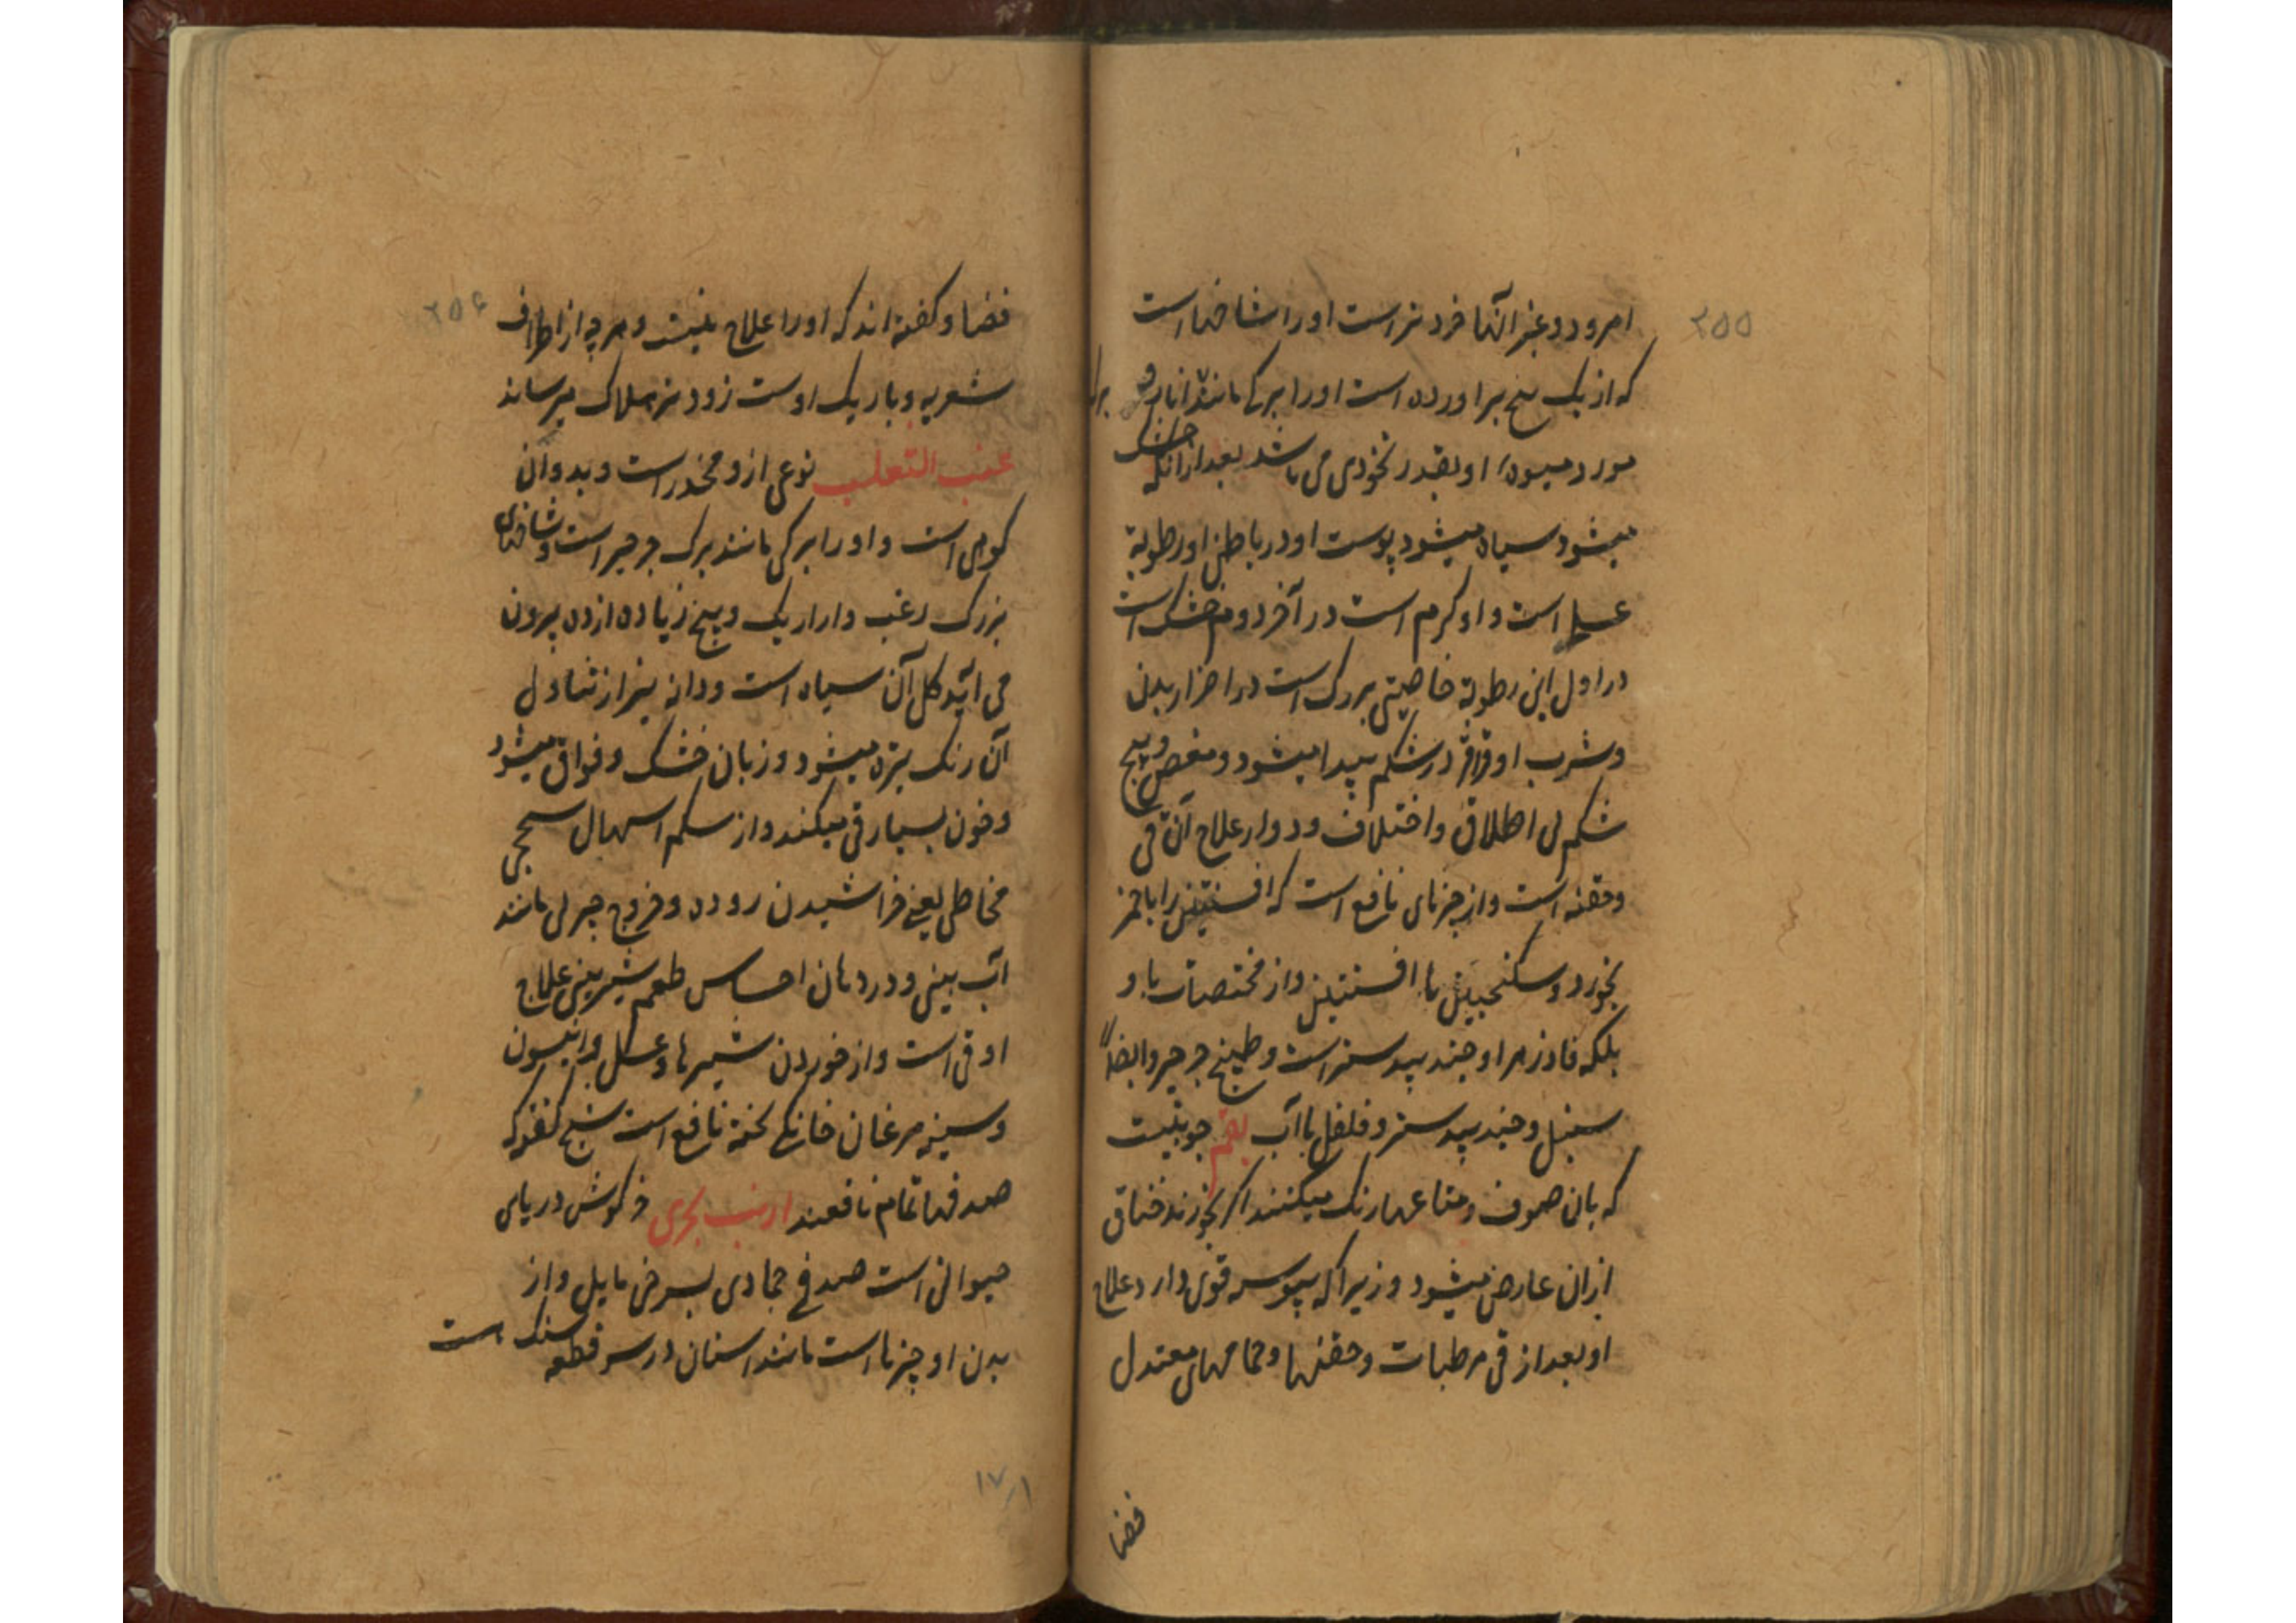 ۲۵۵
امرود و غیر آنها خرد تر است او را شاخها است
که از یک بیخ بر آورده است او را برکی مانند انار و
مورد میوهٔ او بقدر نخودی می باشد بعد از انکه خشک
میشود سیاه میشود پوست او در باطن او رطوبة
عسلی است و او کرم است در آخر دوم خشک است
در اول این رطوبة خاصیتی بزرک است در اضرار بدن
و شرب او قراقر در شکم پیدا میشود و مغص و پیچ
شکم لی اطلاق و اختلاف و دوار علاج آن قی
و حقنه است و از چیزهای نافع است که افسنتین را با خمر
بخورد و سکنجبین با افسنتین و از مختصات با و
بلکه فادزهر او جند بیدستر است و طبیخ جرجیر و ایضاً
سنبل و جند بیدستر و فلفل با آب بقم چوبیست
که بان صوف و متاعها رنک میکنند اکر بخورند خناق
ازان عارض میشود و زیرا که یبوسه قوی دارد علاج
او بعد از قی مرطبات و حقنها و حمامهای معتدل
فضا
۲۵۶
فضا و کفته اند که او را علاج نیست و هر چه از اطراف
شعریه و باریک اوست زود تر بهلاک میرساند
عنب الثعلب نوعی ازو مخدر است و بد و آن
کوهی است و او را برکی مانند برک جرجیر است و شاخهای
بزرک زغب دارا ریک و بیخ زیاده از ده بیرون
می آید کل آن سیاه است و دانه نیز از تناول
آن رنک تیره میشود و زبان خشک و فواق میشود
و خون بسیار قی میکند و از سکم اسهال سحجی
مخاطی یعنی خراشیدن روده و خروج چیزلی مانند
آب بینی و در دهان احساس طعم شیر یعنی علاج
او قی است و از خوردن شیرها و عسل و انیسون
و سینه مرغان خانکی پخته نافع است شیخ کفته که
صدفها تمام نافعند ارنب بحری خرکوش دریای
حیوانی است صدفی جمادی بسرخی مایل و از
بدن او چیزها است مانند اسنان در سر قطعه سنک است
۱۷/۱